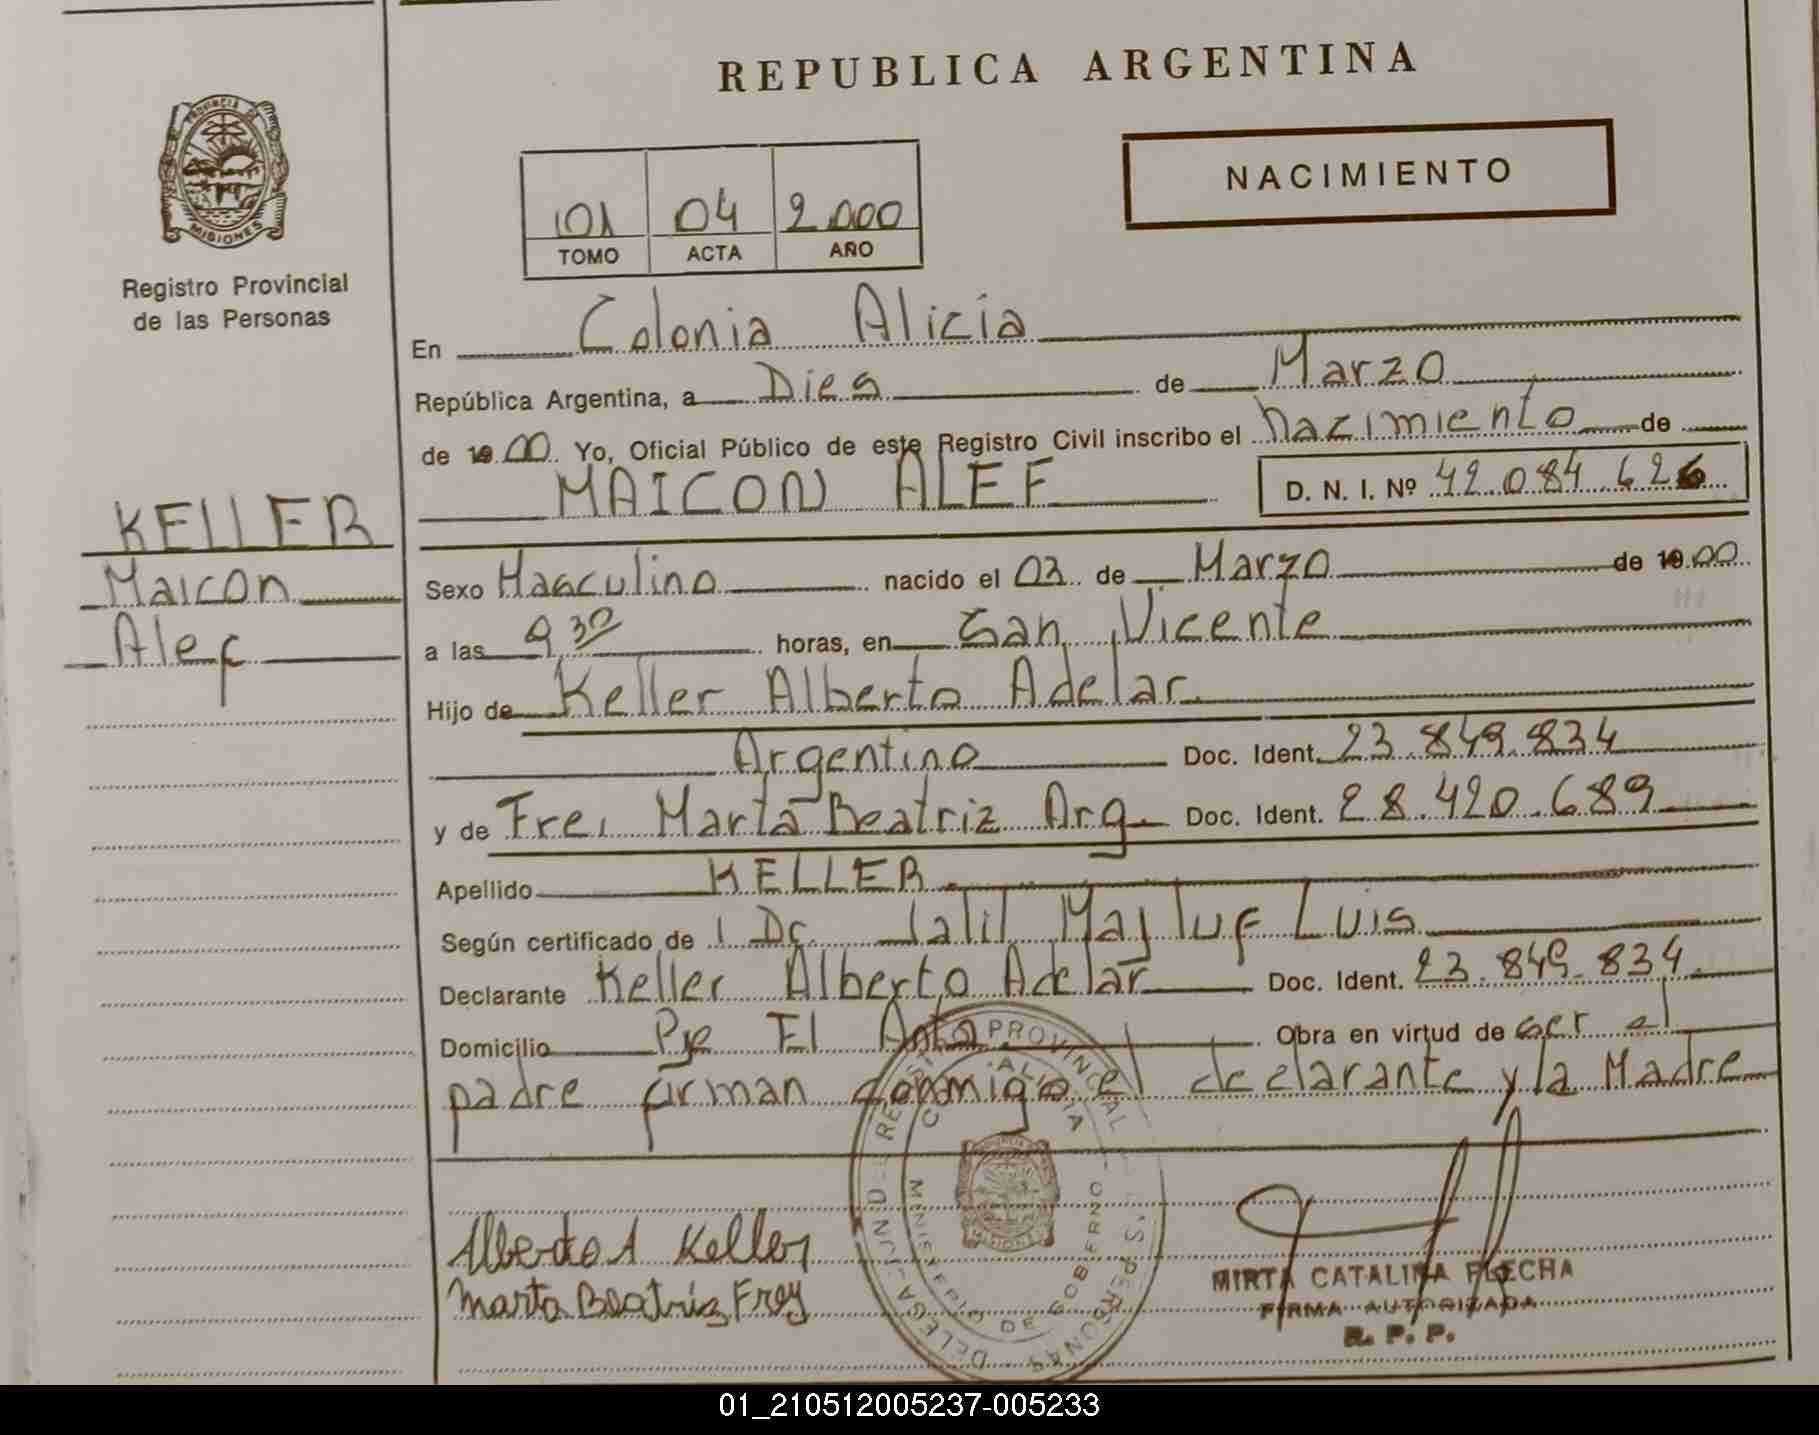 REPUBLICA ARGENTINA
NACIMIENTO
101 04 2.000
TOMO ACTA AÑO
PROVINCIA DE
MISIONES
Registro Provincial
de las Personas
En Colonia Alicia
República Argentina, a Dies de Marzo
de 19 00 Yo, Oficial Público de este Registro Civil inscribo el nacimiento de
MAICON ALEF D. N. I. Nº 42.084.626
KELLER
Maicon
Alef
Sexo Masculino nacido el 03 de Marzo de 19 00
a las 9,30 horas, en San Vicente
Hijo de Keller Alberto Adelar
Argentino Doc. Ident. 23.849.834
y de Frei Marta Beatriz Arg. Doc. Ident. 28.420.689
Apellido KELLER
Según certificado de Dr. Jalil Majluf Luis
Declarante Keller Alberto Adelar Doc. Ident. 23.849.834
Domicilio Pje El Anta Obra en virtud de ser el
padre firman conmigo el declarante y la Madre
Alberto A Keller
Marta Beatriz Frey
MIRTA CATALINA FLECHA
FIRMA AUTORIZADA
R. P. P.
01_210512005237-005233